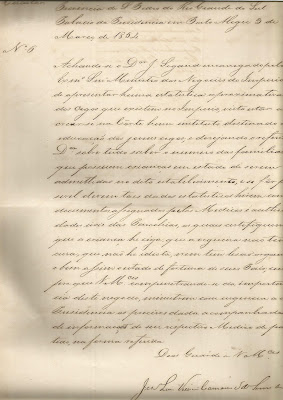 Provincia de S. Pedro do Rio Grande do Sul
Palacio da Presidencia em Porto Alegre 3 de
Março de 1854
Nº 6
Achando-se o Dor J. Sigaud encarregado pelo
Exmo Snr Ministro dos Negocios do Imperio
de apresentar huma estatistica aproximativa
dos cegos que existem no Imperio, visto estar a
crear-se na Côrte hum instituto destinado a
educação dos jovens cegos, e desejando o referido
Dor sabe tudo sobre o numero das familias
que possuem crianças em estado de serem
admittidas no dito estabelecimento, e se for
possivel serem taes dados estatisticos
documentos assignados pelos Medicos e authori
dades das Parochias, os quaes certifiquem
que a criança he cega, que a cegueira não tem
cura, que não he idiota, nem tem
e bem assim o estado de fortuna de seus Pais, cum
pre que VMces compenetrando-se da importan
cia deste negocio,
Presidencia as precisas acompanhadas
de informação dos respectivos Medicos de par
tidos, na forma referida.
Deos Guarde a VMces